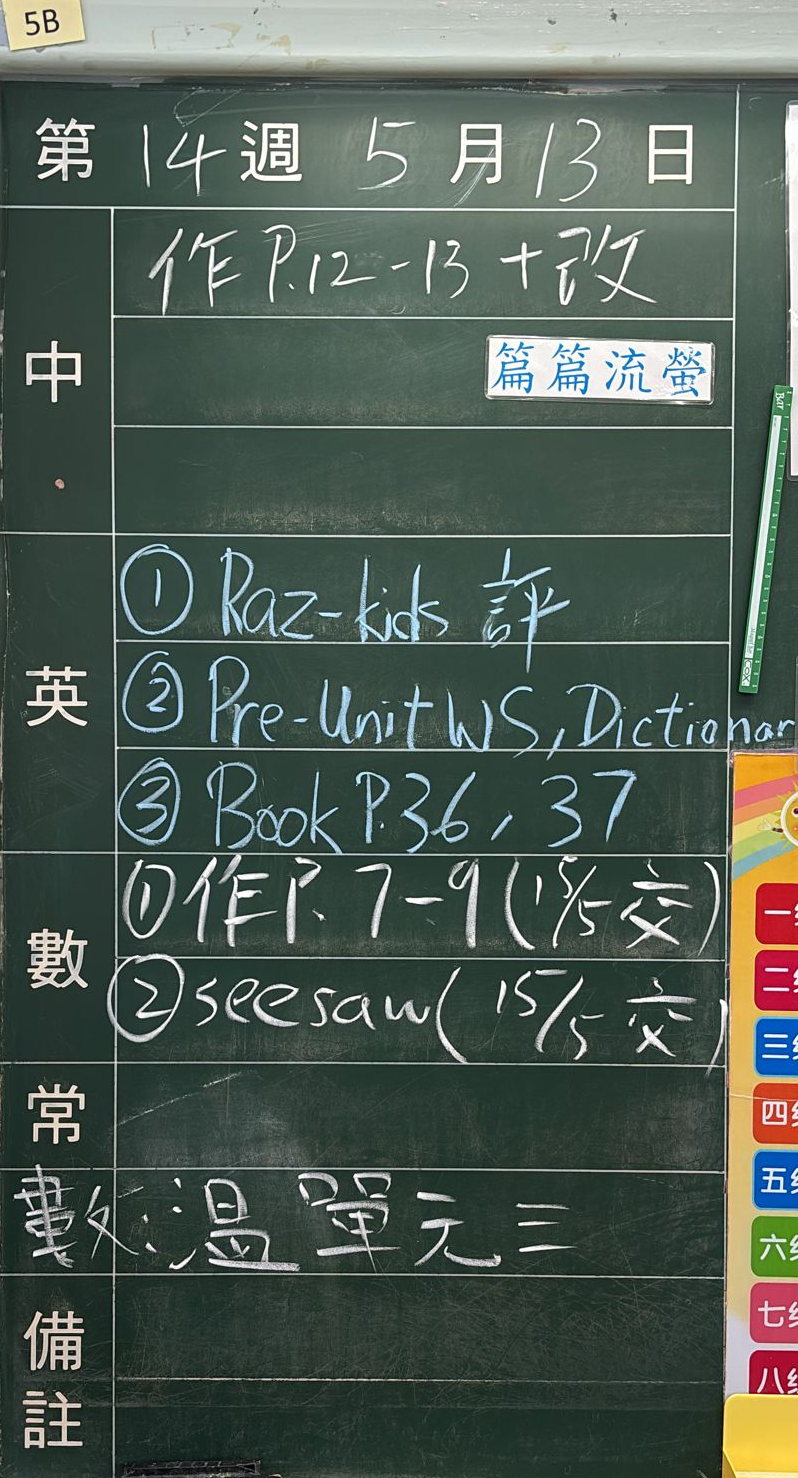 5B
第 14 週 5 月 13 日
中
作 P.12-13 + 改
篇篇流螢
英
① Raz-kids 評
② Pre-Unit WS, Dictionar
③ Book P.36, 37
數
① 作 P. 7-9 (15/5 交)
② seesaw (15/5 交)
常
數:溫單元三
備註
一
二
三
四
五
六
七
八